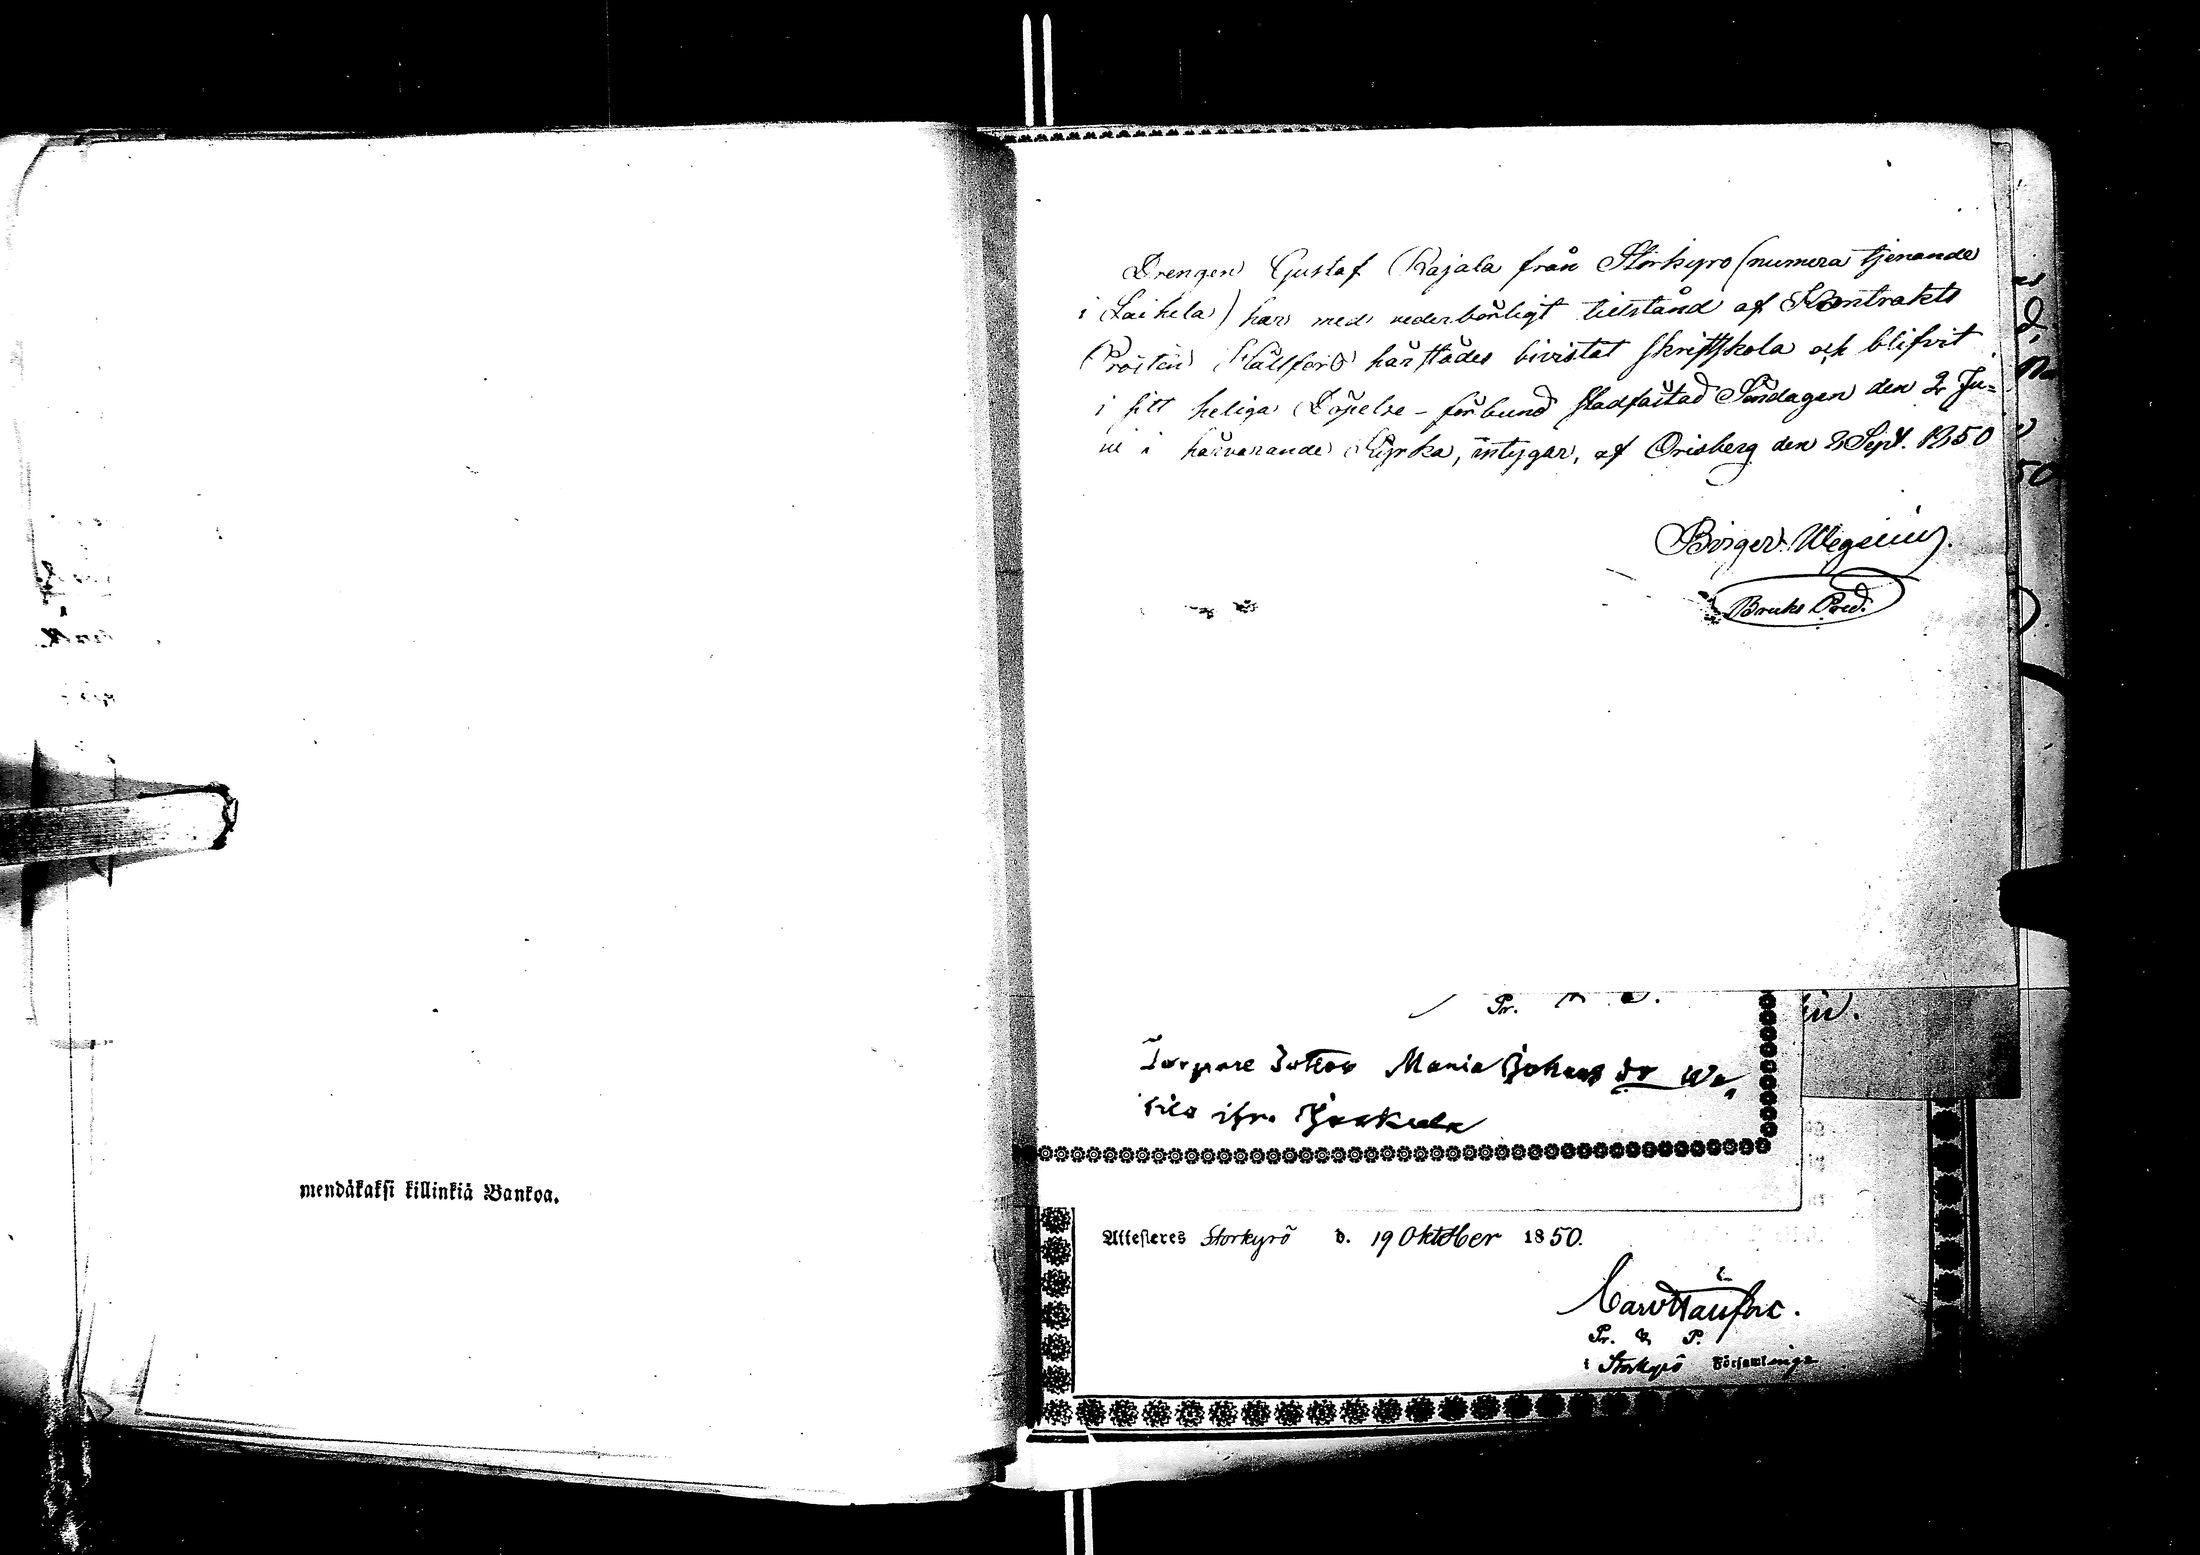 mendäkaksi killinkiä Bankoa.
Drengen Gustaf Rajala från Storkyro (numera tjenande
i Laihela) har med vederbörligt tillstånd af Kontrakts
Prosten Hällfors härstädes bivistat skriftskola och blifvit
i sitt heliga Döpelse-förbund stadfästad Söndagen den 2 Ju=
ni i härvarande Kyrka, intygar, af Orisberg den 2 Sept. 1850
Birger Wegelius.
Bruks Pred.
Pr.
Torpare Maria Johans dr
ifr.
Attesteres Storkyrö d. 19 Oktober 1850.
Pr. & P.
i Storkyrö Församlinga